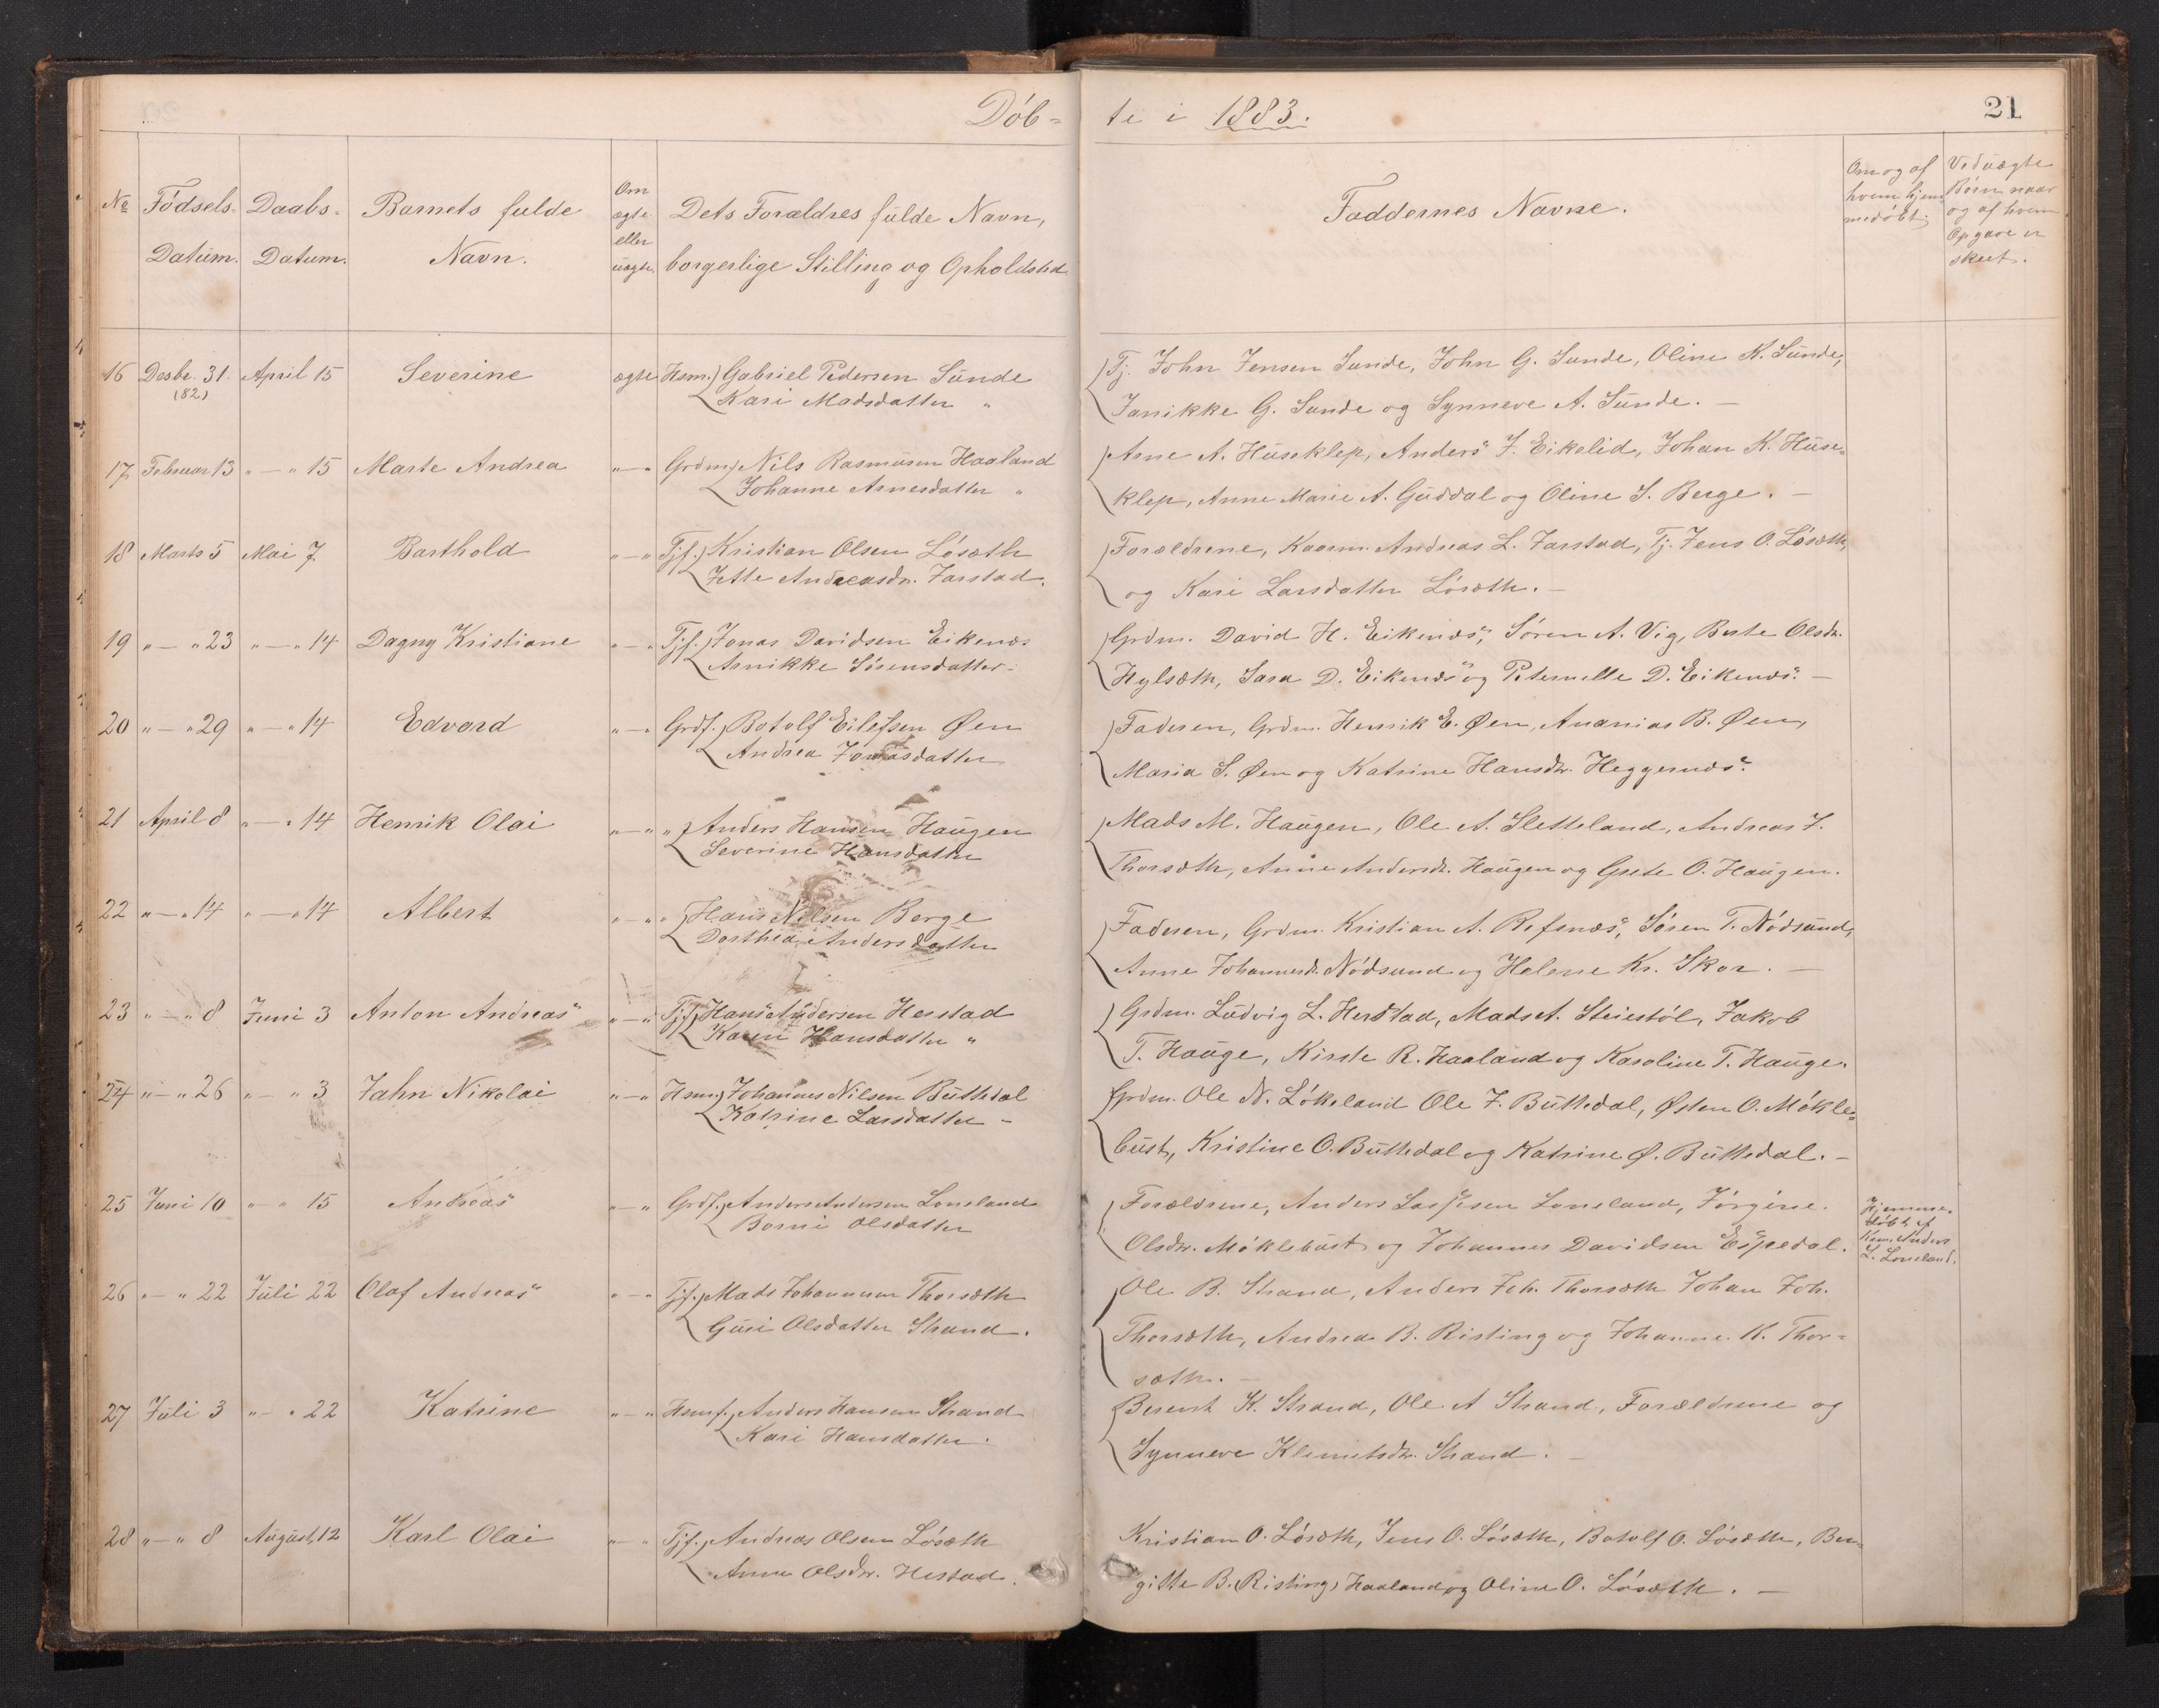 Döb- te i 1883. 21
No Födsels- Datum. Daabs- Datum. Barnets fulde Navn. Om ægte eller uægte. Dets Forældres fulde Navn, borgerlige Stilling og Opholdsted Faddernes Navne. Om og af hvem hjem- medöbt. Ved uægte Börn naar og af hvem Opgave er skeet.
16 Desbr. 31. (82) April 15 Severine ægte Hsm. Gabriel Pedersen Sunde
Kari Madsdatter "
Tj. John Jensen Sunde, John G. Sunde, Oline K. Sunde,
Janikke G. Sunde og Synneve A. Sunde. —
17 Februar 13 " — " 15 Marte Andrea " — " Grdm. Nils Rasmusen Haaland
Johanne Arnesdatter "
Arne A. Huseklep, Anders J. Eikelid, Johan K. Huse-
klep, Anne Marie A. Guddal og Oline S. Berge. —
18 Marts 5 Mai 7. Barthold " — " Tjf. Kristian Olsen Lösæth
Jette Andreasdr. Jarstad.
Forældrene, Kaarm. Andreas L. Jarstad, Tj. Jens O. Lösæth,
og Kari Larsdatter Lösæth. —
19 " — " 23 " — " 14 Dagny Kristiane " — " Tjf. Jonas Davidsen Eikenæs
Arnikke Sörensdatter -
Grdm. David H. Eikenæs, Sören A. Vig, Berte Olsdr.
Hylsæth, Sara D. Eikenæs og Peternelle D. Eikenæs. —
20 " — " 29 " — " 14 Edvard " — " Grdf. Botolf Eilefsen Øen
Andrea Jonasdatter
Faderen, Grdm. Henrik E. Øen, Ananias B. Øen,
Maria S. Øen og Katrine Hansdr. Heggernæs.
21 April 8 " — " 14 Henrik Olai " — " " Anders Hansen Haugen
Severine Hansdatter
Mads M. Haugen, Ole A. Sletteland, Andreas J.
Thorsæth, Anne Andersdr. Haugen og Grete O. Haugen.
22 " — " 14 " — " 14 Albert " — " " Hans Nilsen Berge
Dorthea Andersdatter
Faderen, Grdm. Kristian A. Refsnæs, Sören T. Nödsund,
Anne Johannesdr. Nödsund og Helene Kr. Skor. —
23 " — " 8 Juni 3 Anton Andreas " — " Tjf. Hans Andersen Herstad
Karen Hansdatter "
Grdm. Ludvig L. Herstad, Mads A. Steiestöl, Jakob
T. Hauge, Kirste R. Haaland og Karoline T. Hauge.
24 " — " 26 " — " 3 Jahn Nikolai " — " Hsm. Johannes Nilsen Buttedal
Katrine Larsdatter -
Grdm. Ole N. Lökeland Ole J. Buttedal, Østen O. Mökle-
bust, Kristine O. Buttedal og Katrine Ø. Buttedal. —
25 Juni 10 " — " 15 Andreas " — " Grdf. Anders Andersen Loneland
Borni Olsdatter
Forældrene, Anders Lassesen Loneland, Jörgine
Olsdr. Möklebust og Johannes Davidsen Espedal.
Hjemme-
döbt af
Ksm. Anders
L. Loneland.
26 " — " 22 Juli 22 Olaf Andreas " — " Tjf. Mads Johannesen Thorsæth
Guri Olsdatter Strand.
Ole B. Strand, Anders Joh. Thorsæth Johan Joh.
Thorsæth, Andrea B. Risting og Johanne K. Thor-
sæth. —
27 Juli 3 " — " 22 Katrine " — " Hsmf. Anders Hansen Strand
Kari Hansdatter.
Berent K. Strand, Ole A Strand, Forældrene og
Synneve Klemetsdr. Strand. —
28 " — " 8 August 12 Karl Olai " — " Tjf. Andreas Olsen Lösæth
Anne Olsdr. Hestad.
Kristian O. Lösæth, Jens O. Lösæth, Botolf O. Lösæth, Ber-
gitte B. (Risting) Haaland og Oline O. Lösæth. —